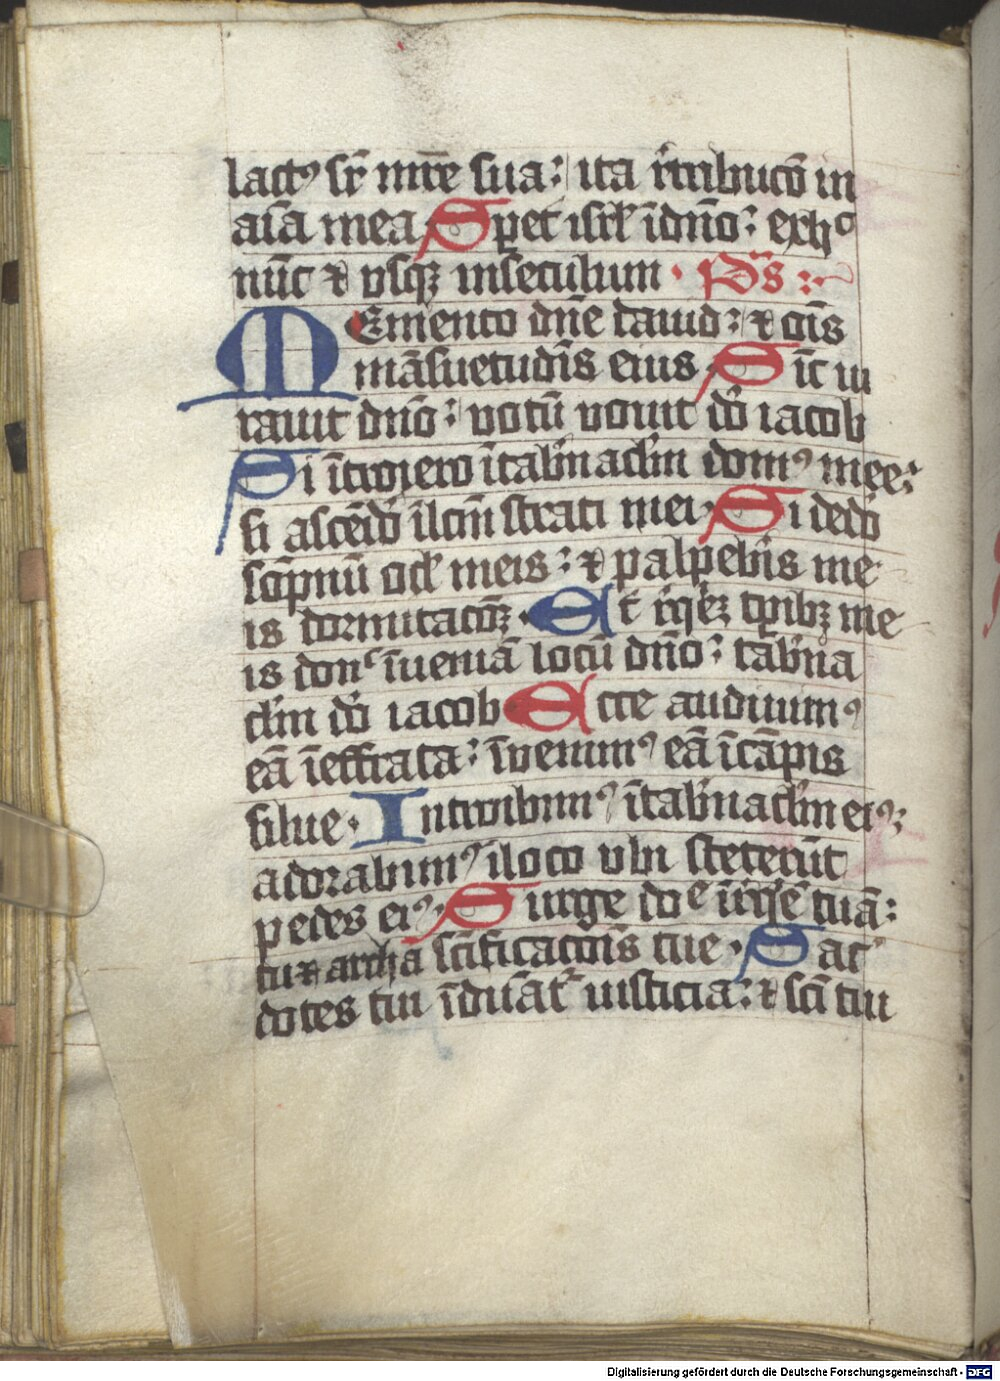 lactꝰ sr̄ mr̄e sua: ita r̄tributō in
aīa mea Sꝑet isrl̄ īdn̄o: exhͦ
nūc ⁊ vsqꝫ inseculum · Ps̄
Memento dn̄e dauid: ⁊ oīs
māsuetudīs eius Sic iu
rauit dn̄o: uotū uouit dō iacob
Si ītroiero ītabn̄aclm̄ domꝰ mee:
si ascēdō īlcm̄ strati mei Si dedō
sōpnū ocl̄ meis: ⁊ palpebris me
is dormitacōꝫ · Et r̄qēꝫ tꝑibꝫ me
is donͨ īueniā locū dn̄o: tabn̄a
clm̄ dō iacob Ecce audiuimꝰ
eā īeffrata: īuenimꝰ eā īcāpis
silue · Introibimꝰ ītabn̄aclm̄ eiꝰ:
adorabimꝰ īloco vbi steterūt
pedes eiꝰ · Surge doͤ īr̄qē tuā:
tu ⁊ archa scīficacōis tue · Sac̄
dotes tui īduāt᷑ iusticia: ⁊ scī tui
Digitalisierung gefördert durch die Deutsche Forschungsgemeinschaft - DFG